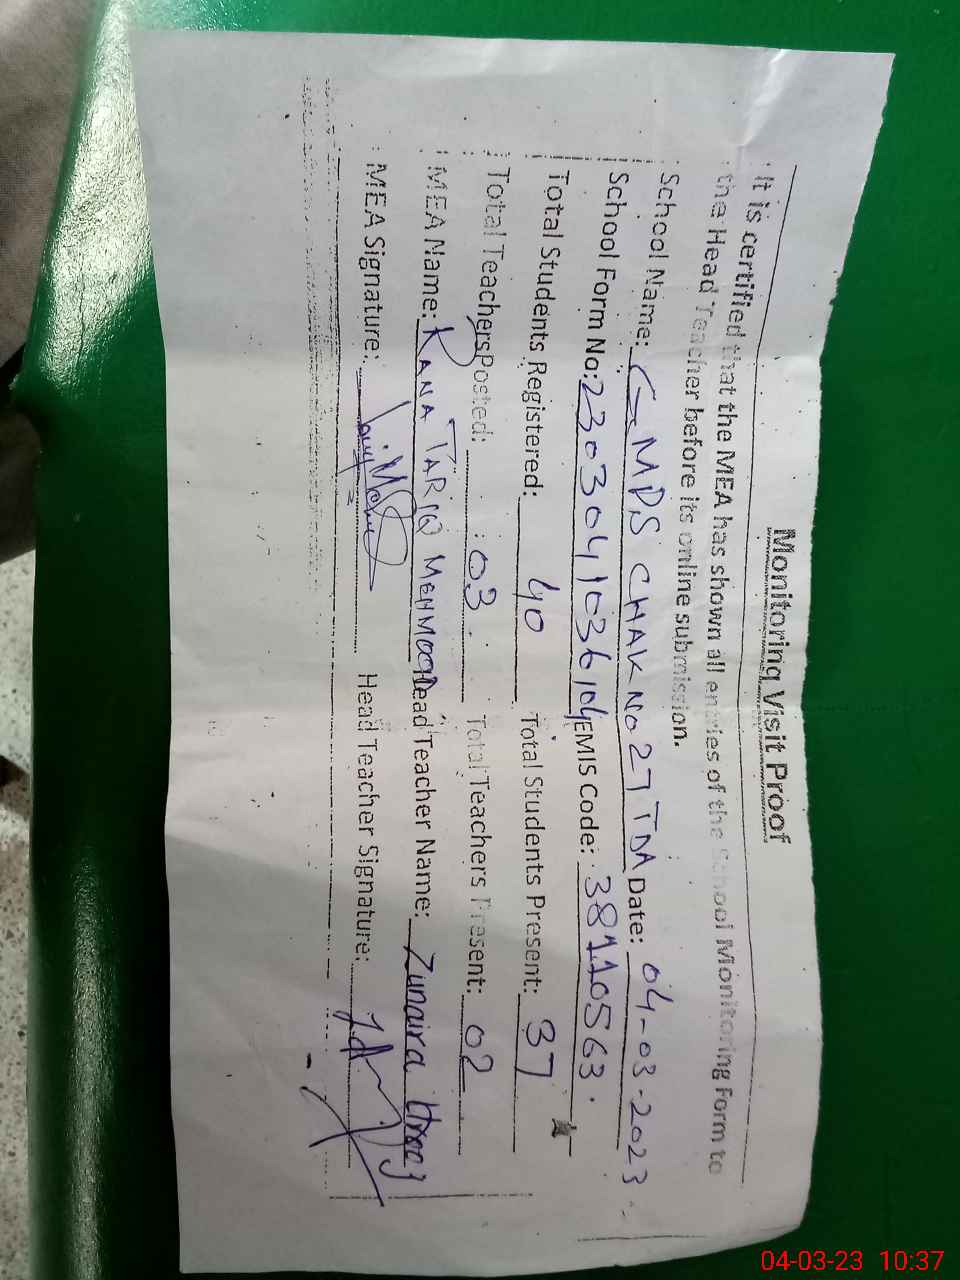 Monitoring Visit Proof
It is certified that the MEA has shown all entries of the School Monitoring Form to
the Head Teacher before its online submission.
School Name: GMPS CHAK NO 27 TDA Date: 04-03-2023
School Form No: 2303041036104 EMIS Code: 38110563.
Total Students Registered: 40 Total Students Present: 37
Total Teachers Posted: 03 Total Teachers Present: 02
MEA Name: RANA TARIQ MEHMOOD Head Teacher Name: Zunaira
MEA Signature: Head Teacher Signature:
04-03-23 10:37